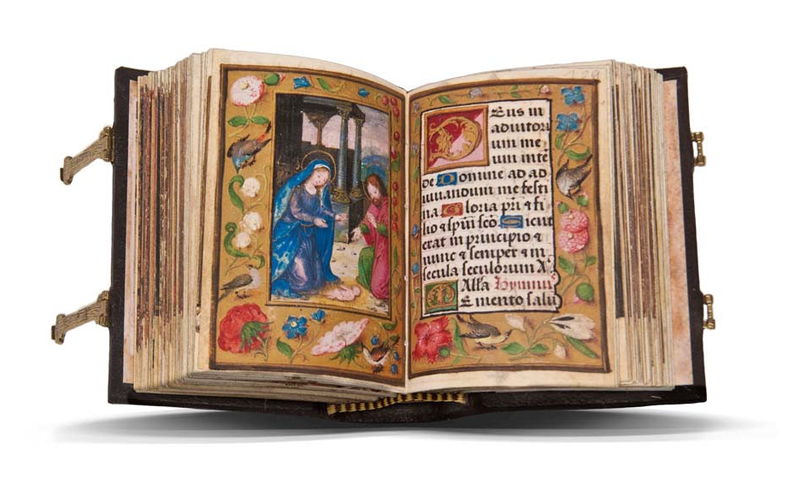 Deus in
adiutori
um me
um inte
de Domine ad ad
iuuandum me festi
na Gloria pri & fi
lio & spui sco Sicut
erat in principio &
nunc & semper & in
secula seculorum A
Alla Hymnus
Memento salu